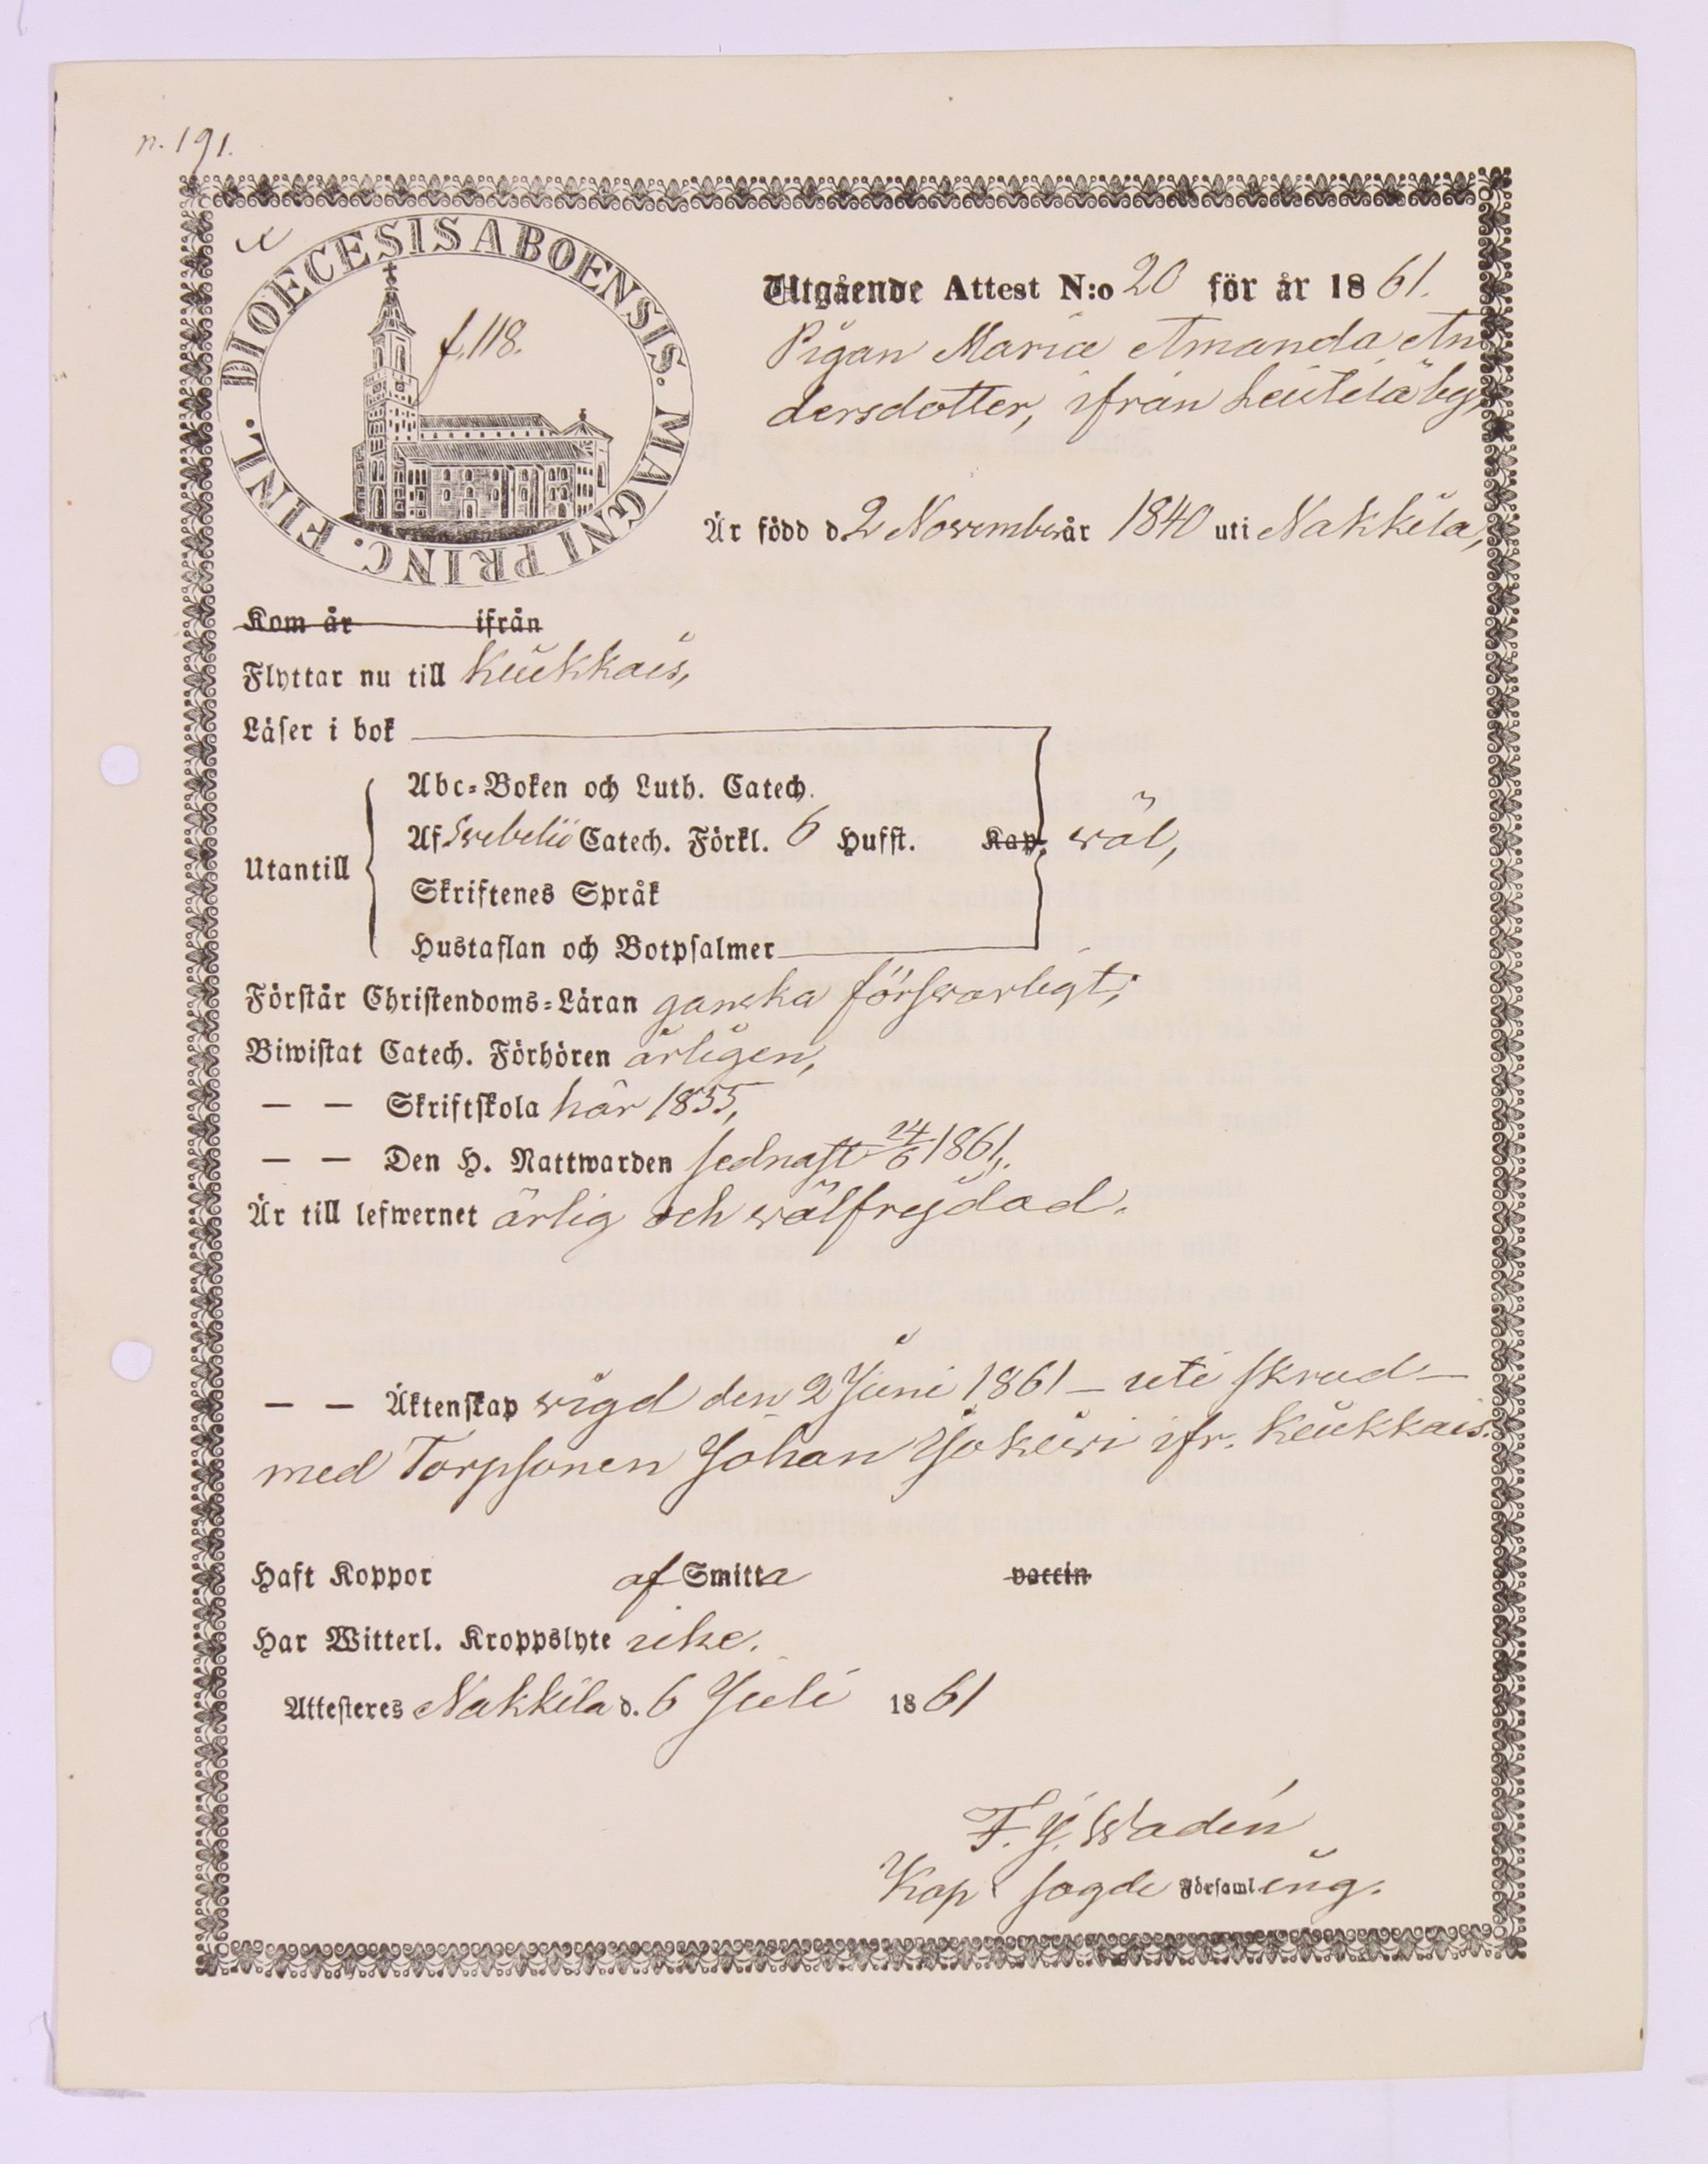 n. 191.
DIOECESIS ABOENSIS. MAGNI PRINC. FINL.
f. 118.
Utgående Attest N:o 20 för år 1861.
Pigan Maria Amanda An
dersdotter, ifrån Leistilä by,
Är född d. 2 November år 1840 uti Nakkila,
Kom år ifrån
Flyttar nu till Kiukkais,
Läser i bok
Abc-Boken och Luth. Catech.
Af Svebelii Catech. Förkl. 6 Hufst. Kap. wäl,
Utantill
Skriftenes Språk
Hustaflan och Botpsalmer
Förstår Christendoms-Läran ganska förswarligt;
Biwistat Catech. Förhören årligen,
— — Skriftskola här 1855,
— — Den H. Nattwarden sednast 24/6 1861,
Är till lefwernet ärlig och wälfrejdad.
— — Äktenskap wigd den 2 Juni 1861 — uti skrud —
med Torpsonen Johan ifr. Kiukkais.
Haft Koppor af Smitta vaccin
Har Witterl. Kroppslyte icke.
Attesteres Nakkila d. 6 Juli 1861
F. J. Wadén
Kap. i sagde Församling.